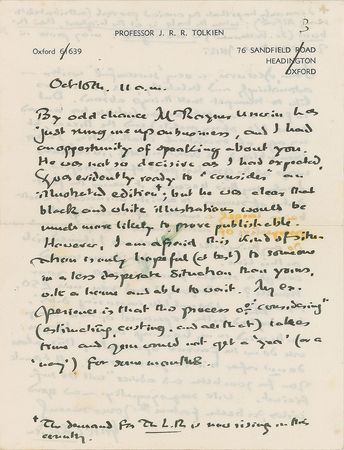 3
PROFESSOR J. R. R. TOLKIEN
Oxford 61639
76 SANDFIELD ROAD
HEADINGTON
OXFORD
Oct 16th. 11 a.m.
By odd chance Mr Rayner Unwin has
just rung me up on business, and I had
an opportunity of speaking about you.
He was not so decisive as I had expected,
& was evidently ready to "consider" an
illustrated edition†; but he was clear that
black and white illustrations would be
much more likely to prove publishable.
However, I am afraid this kind of situ-
ation is only hopeful (at best) to someone
in a less desperate situation than yours,
with a home and able to wait. My ex-
perience is that this process of "considering"
(estimating, costing, and all that) takes
time and you would not get a 'yea' (or a
'nay') for some months.
† The demand for The L.R. is now rising in this
country.